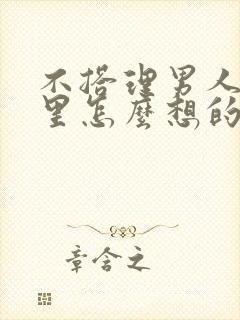 不搭理男人
里怎麽想的
章含之